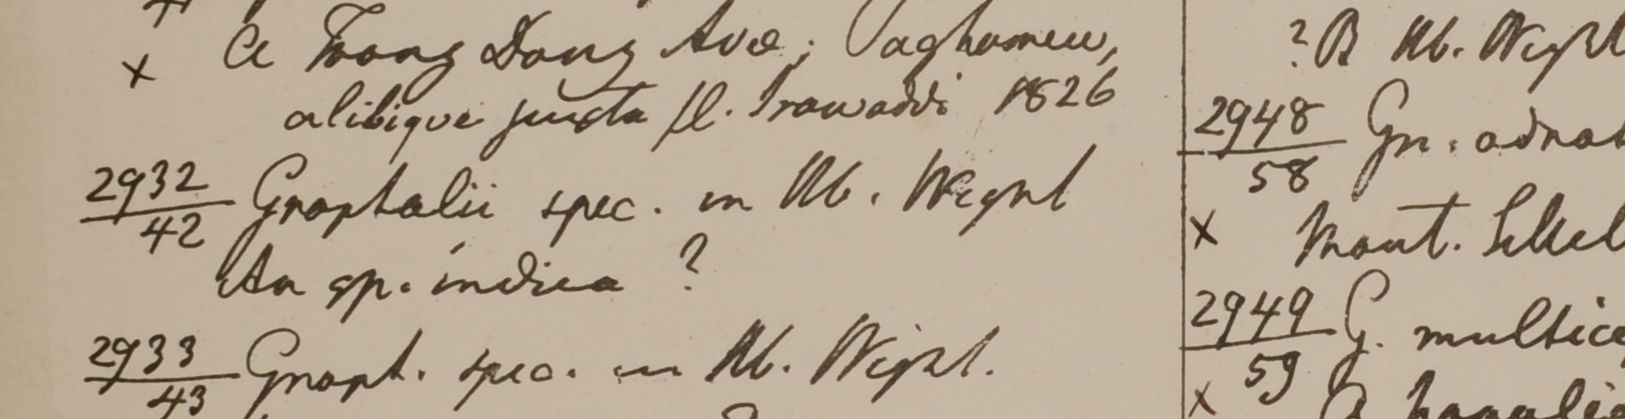 × a Toong Dong Avæ; Paghamew,
alibique juxta fl. Irawaddi 1826
2932
42 Gnaphalii spec. in Hb. Wight
An sp. indica ?
2933
43 Gnaph. spec. in Hb. Wight.
? B Hb. Wight
2948
58 Gn. adnat
× Mont. Sillet
2949
59 G. multica
×